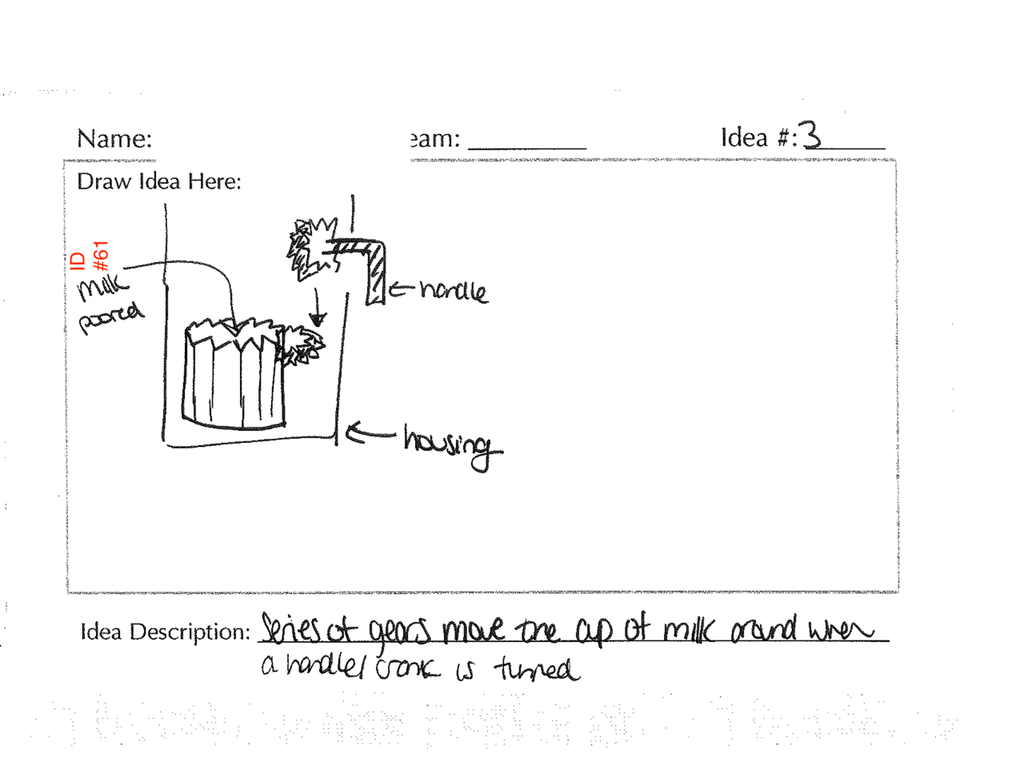 Name:
eam:
Idea #: 3
Draw Idea Here:
ID
#61
milk
poored
handle
housing
Idea Description: Series of gears move the cup of milk around when
a handle/crank is turned